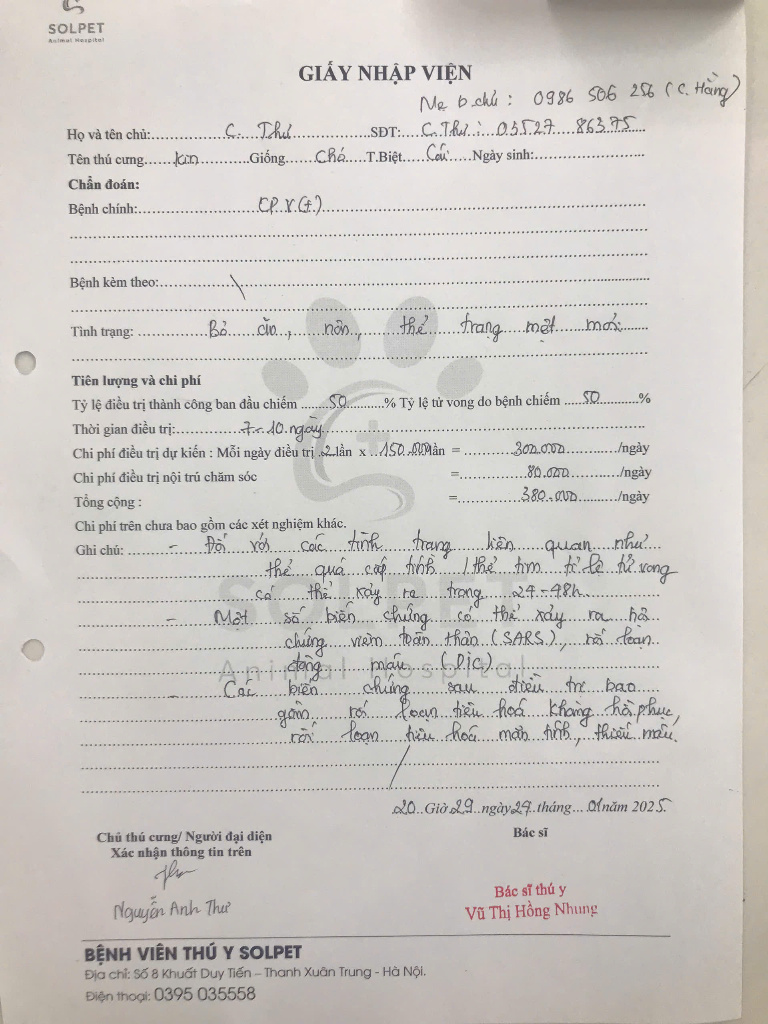 SOLPET
Animal Hospital
GIẤY NHẬP VIỆN
Mẹ b.chủ : 0986 506 256 (C. Hằng)
Họ và tên chủ:........C. Thư........SĐT:...C.Thư : 03527 86375...
Tên thú cưng......Kin......Giống...Chó...T.Biệt...Cái...Ngày sinh:........
Chẩn đoán:
Bệnh chính:........CPV(+)........
Bệnh kèm theo:........\
Tình trạng: ........Bỏ ăn, nôn, thể trạng mệt mỏi........
Tiên lượng và chi phí
Tỷ lệ điều trị thành công ban đầu chiếm ......50......% Tỷ lệ tử vong do bệnh chiếm ......50......%
Thời gian điều trị:........7-10 ngày........
Chi phí điều trị dự kiến : Mỗi ngày điều trị .2 lần x ..150.000/lần = ........300.000......../ngày
Chi phí điều trị nội trú chăm sóc =........80.000......../ngày
Tổng cộng : =........380.000......../ngày
Chi phí trên chưa bao gồm các xét nghiệm khác.
Ghi chú: - Đối với các tình trạng liên quan như
thể quá cấp tính / thể tim tỉ lệ tử vong
có thể xảy ra trong 24-48h.
- Một số biến chứng có thể xảy ra hội
chứng viêm toàn thân (SARS), rối loạn
đông máu (DIC)
- Các biến chứng sau điều trị bao
gồm rối loạn tiêu hoá không hồi phục,
rối loạn tiêu hoá mạn tính, thiếu máu.
SOLPET
Animal Hospital
20..Giờ 29..ngày 24..tháng...01 năm 2025
Chủ thú cưng/ Người đại diện
Xác nhận thông tin trên
Bác sĩ
Nguyễn Anh Thư
Bác sĩ thú y
Vũ Thị Hồng Nhung
BỆNH VIỆN THÚ Y SOLPET
Địa chỉ: Số 8 Khuất Duy Tiến – Thanh Xuân Trung - Hà Nội.
Điện thoại: 0395 035558